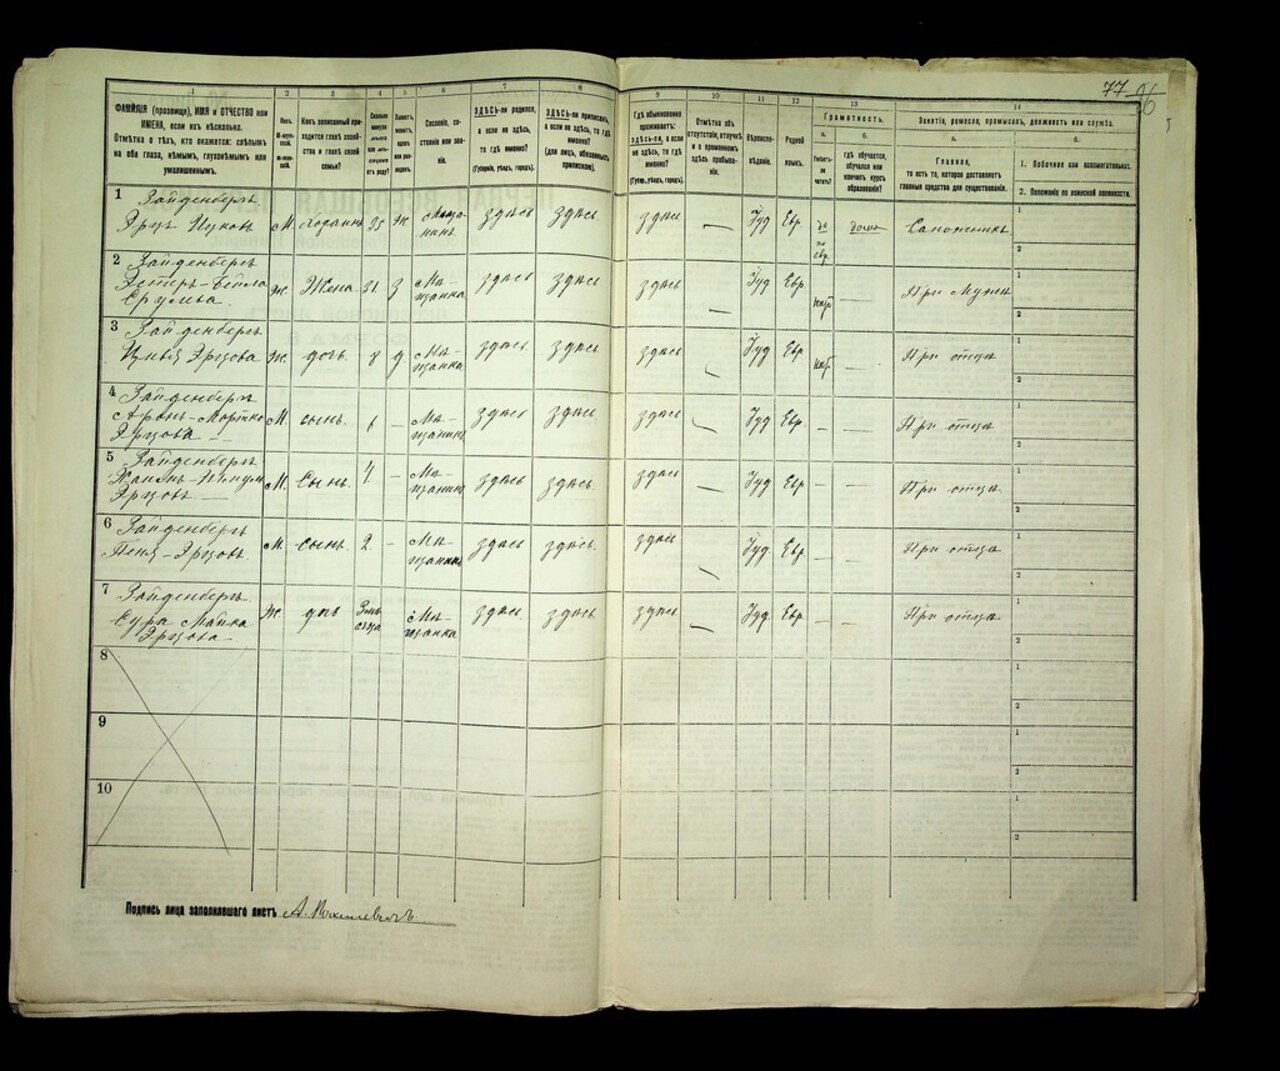 77 96
1 2 3 4 5 6 7 8 9 10 11 12 13 14
ФАМИЛІЯ (прозвище), ИМЯ и ОТЧЕСТВО или
ИМЕНА, если ихъ нѣсколько.
Отмѣтка о тѣхъ, кто окажется: слѣпымъ
на оба глаза, нѣмымъ, глухонѣмымъ или
умалишеннымъ.
Полъ.
М-мужской.
Ж-женскій.
Какъ записанный приходится главѣ хозяйства и главѣ своей семьи?
Сколько минуло лѣтъ или мѣсяцевъ отъ роду?
Холостъ, женатъ, вдовъ или разведенъ.
Сословіе, состояніе или званіе.
ЗДѢСЬ-ли родился,
а если не здѣсь,
то гдѣ именно?
(Губернія, уѣздъ, городъ).
ЗДѢСЬ-ли приписанъ,
а если не здѣсь, то гдѣ
именно?
(для лицъ, обязанныхъ
припискою).
Гдѣ обыкновенно
проживаетъ:
здѣсь-ли, а если
не здѣсь, то гдѣ
именно?
(Губер., уѣздъ, городъ).
Отмѣтка объ
отсутствіи, отлучкѣ
и о временномъ
здѣсь пребываніи.
Вѣроисповѣданіе.
Родной
языкъ.
Грамотность.
а.
Умѣетъ-ли читать?
б.
гдѣ обучается,
обучался или
кончилъ курсъ
образованія?
Занятіе, ремесло, промыселъ, должность или служба.
а.
Главное,
то есть то, которое доставляетъ
главныя средства для существованія.
б.
1. Побочное или вспомогательное.
2. Положеніе по воинской повинности.
1 Зайденбергъ
Эрцъ Ицковъ М. хозяинъ 35 Ж Мѣщанинъ здѣсь здѣсь здѣсь — Іуд Евр да по евр. дома Сапожникъ 1 2
2 Зайденбергъ
Эстеръ-Бейла
Срулева. Ж. Жена. 31. З Мѣщанка здѣсь здѣсь здѣсь — Іуд Евр. нѣт — При мужѣ 1 2
3 Зайденбергъ
Цивья Эрцова Ж. дочь. 8 д Мѣщанка здѣсь здѣсь здѣсь — Іуд Евр нѣт — При отцѣ 1 2
4 Зайденбергъ
Аронъ-Мортко
Эрцовъ М. сынъ. 6 — Мѣщанинъ здѣсь здѣсь здѣсь — Іуд Евр. — — При отцѣ 1 2
5 Зайденбергъ
Эрцовъ — М. Сынъ. 4 — Мѣщанинъ здѣсь здѣсь. здѣсь — Іуд Евр — — При отцѣ 1 2
6 Зайденбергъ
Эрцовъ. М. сынъ. 2 — Мѣщанинъ здѣсь здѣсь. здѣсь — Іуд. Евр. — — При отцѣ 1 2
7 Зайденбергъ.
Сура Малка
Эрцова Ж. дчь 3 мѣсяца Мѣщанка здѣсь. здѣсь. здѣсь. — Іуд. Евр. — — При отцѣ 1 2
8 1 2
9 1 2
10 1 2
Подпись лица заполнявшаго листъ